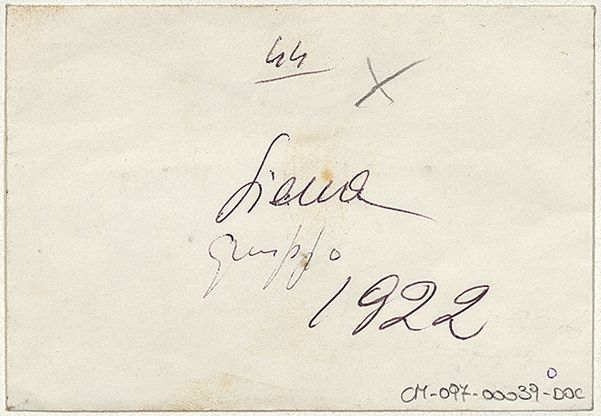 44 X
Siena
gruppo
1922
CM-097-00039-DOC